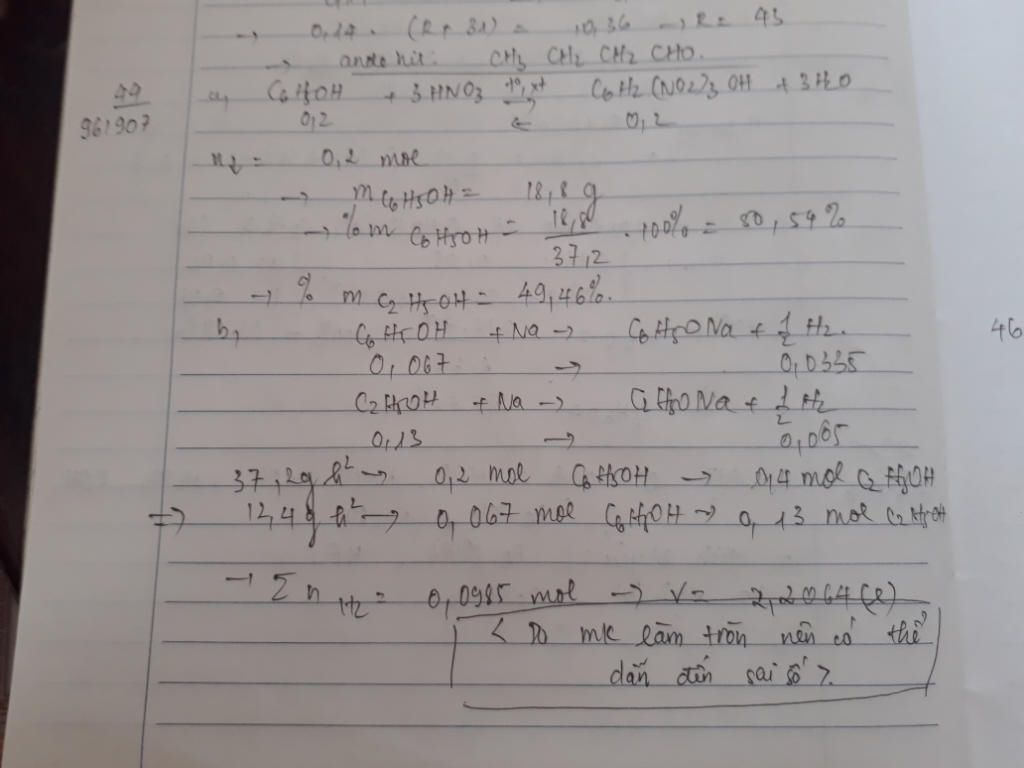 → 0,14 . (R + 31) = 10,36 → R = 43
→ andehit: CH3 CH2 CH2 CHO.
44
961907
a, C6H5OH + 3HNO3 t°, xt ⇌ C6H2(NO2)3OH + 3H2O
0,2 ← 0,2
n↓ = 0,2 mol
→ m C6H5OH = 18,8 g
→ % m C6H5OH = 18,8/37,2 . 100% = 50,54%
→ % m C2H5OH = 49,46%.
b, C6H5OH + Na → C6H5ONa + 1/2 H2.
46
0,067 → 0,0335
C2H5OH + Na → C2H5ONa + 1/2 H2
0,13 → 0,065
37,2g h² → 0,2 mol C6H5OH → 0,4 mol C2H5OH
⇒ 12,4g h² → 0,067 mol C6H5OH → 0,13 mol C2H5OH
→ Σ n H2 = 0,0985 mol → V = 2,2064 (l)
< Do mk làm tròn nên có thể
dẫn đến sai số >.